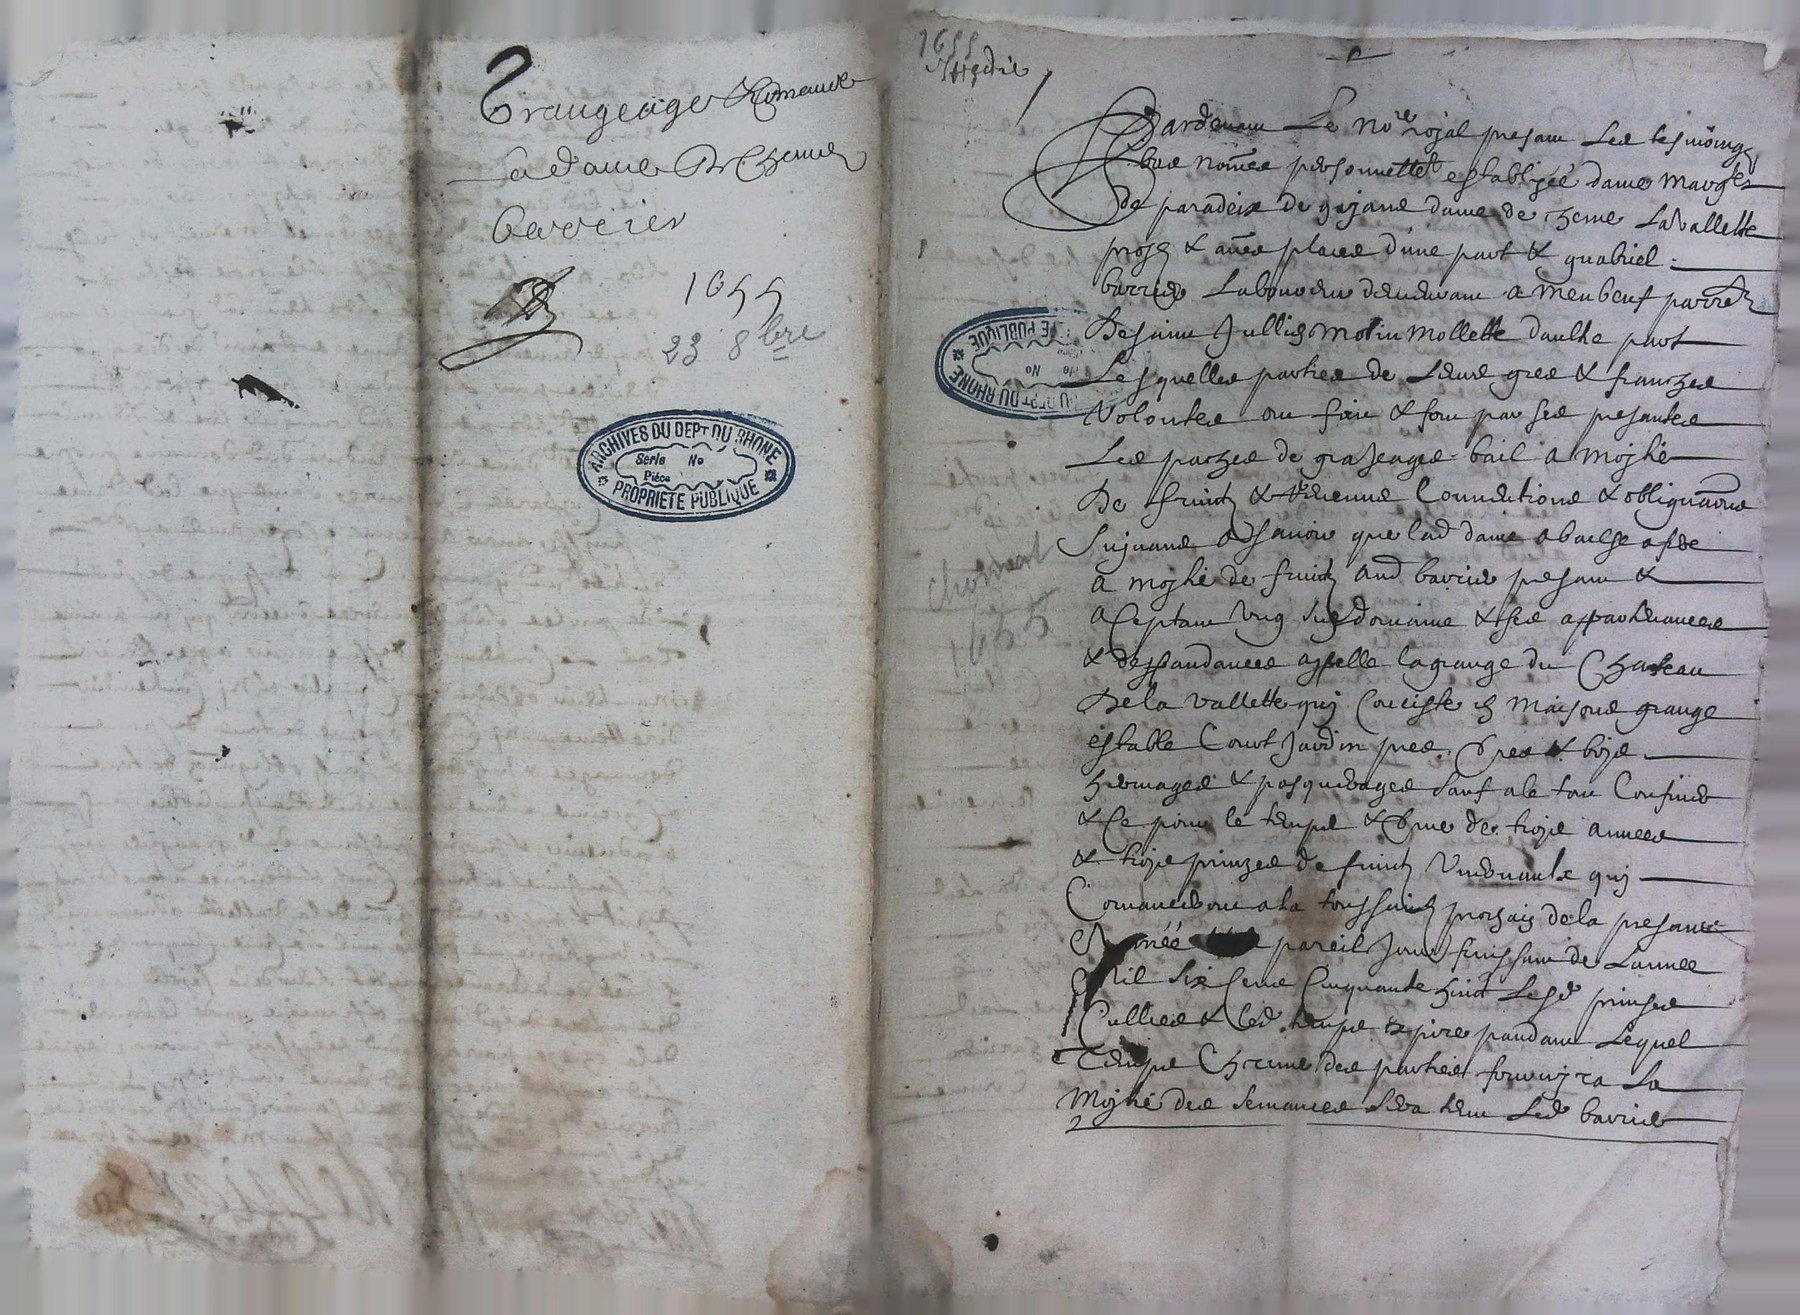 Grangeage
dame
barrier
1655
23 8bre
ARCHIVES DU DEPT DU RHONE
Serie No
Pièce
PROPRIETE PUBLIQUE
1655
Pardevant Le no.re royal presant Les tesmoingz
bas només personnellet establyee dame
de paradeix de dame de Lavallette
& places d'une part & guabriel
barrier Laboureur demeurant a
De saint Jullien Molin Mollette d'aultre part
Lesquelles parties de Leurs gres & franches
Volontes ont faict & font par ses presantes
Les paches de grangeage bail a moytié
De fruictz & conventions & obliguaons
suyvans a savoir que lad dame a bailhé
a moytié de fruictz aud barrier presant &
aceptant ung sien domaine & ses appartenances
& deppandances appellé la grange du Chasteau
De la Vallette quy Conciste en maisons grange
estable Court Jardin pres & boys
hermages & pasquerages sauf
& Ce pour le temps & de troys annees
& troys prinzes de fruictz quy
a la toussainctz prochain de la presante
année pareil Jour finissant de L'annee
Mil six Cens Cinquante huict prinses
& led temps expiré pandant Lequel
Temps Chacune des parties fournyra La
Moytié des semances sera tenu Led barrier
chomant
1655